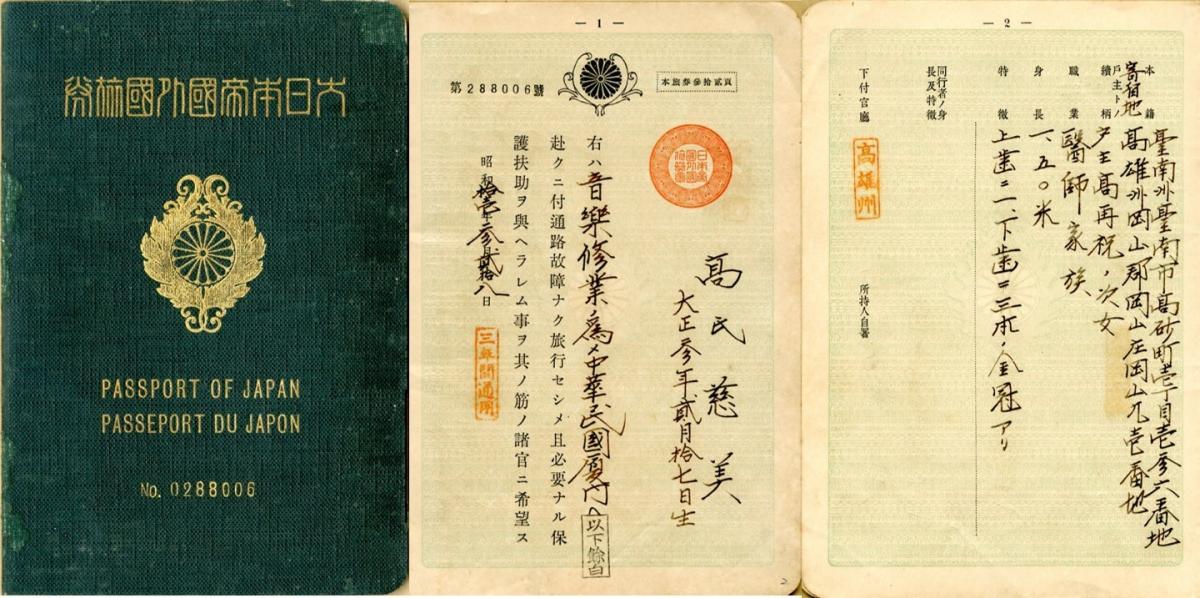 大日本帝國外國旅券
PASSPORT OF JAPAN
PASSEPORT DU JAPON
No. 0288006
— 1 —
第288006號
本旅券參拾貳頁
高氏慈美
大正參年貳月拾七日生
右ハ音樂修業ノ爲メ中華民國廈門ヘ以下餘白
赴クニ付通路故障ナク旅行セシメ且必要ナル保
護扶助ヲ與ヘラレム事ヲ其ノ筋ノ諸官ニ希望ス
昭和拾壹年參月貳拾八日
三年間通用
— 2 —
本籍 臺南州臺南市高砂町壱丁目壱參六番地
寄留地 高雄州岡山郡岡山庄岡山九壱番地
戶主トノ續柄 戶主高再祝ノ次女
職業 醫師家族
身長 一、五〇米
特徵 上歯ニ一、下歯ニ三本ノ金冠アリ
同行者ノ身長及特徵
下付官廳 高雄州
所持人自署